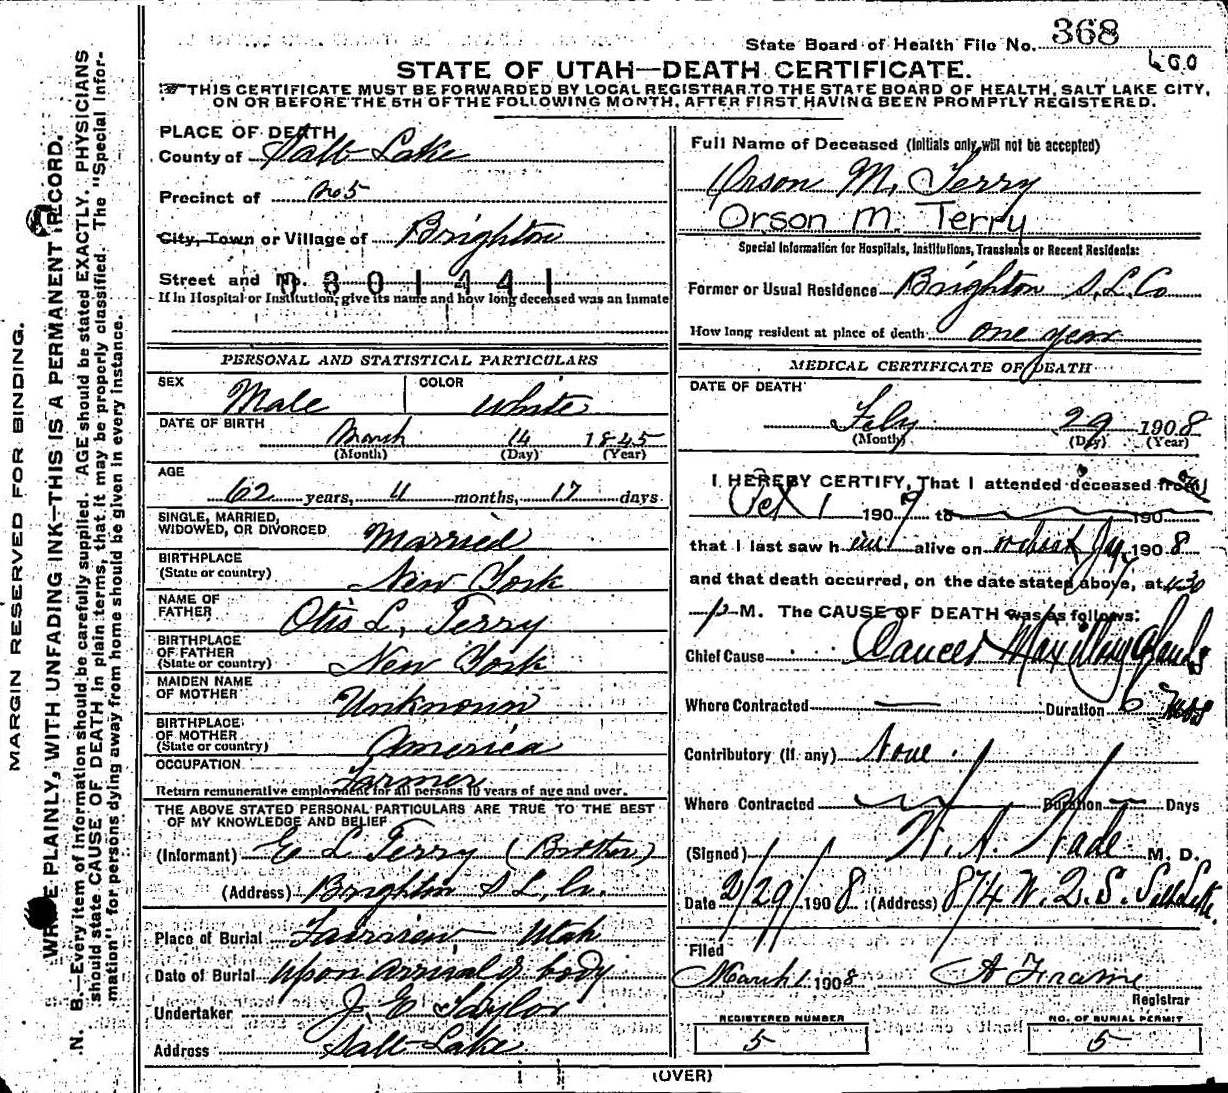 State Board of Health File No. 368
STATE OF UTAH—DEATH CERTIFICATE.
THIS CERTIFICATE MUST BE FORWARDED BY LOCAL REGISTRAR TO THE STATE BOARD OF HEALTH, SALT LAKE CITY,
ON OR BEFORE THE 5TH OF THE FOLLOWING MONTH, AFTER FIRST HAVING BEEN PROMPTLY REGISTERED.
MARGIN RESERVED FOR BINDING.
PLAINLY, WITH UNFADING INK—THIS IS A PERMANENT RECORD.
N. B.—Every item of information should be carefully supplied. AGE should be stated EXACTLY. PHYSICIANS
should state CAUSE OF DEATH in plain terms, that it may be properly classified. The "Special Infor-
mation" for persons dying away from home should be given in every instance.
PLACE OF DEATH
County of Salt Lake
Precinct of No 5
City, Town or Village of Brighton
Street and No. 0301441
If in Hospital or Institution, give its name and how long deceased was an inmate
PERSONAL AND STATISTICAL PARTICULARS
SEX Male COLOR White
DATE OF BIRTH March 14 1845
(Month) (Day) (Year)
AGE
62 years, 11 months, 17 days
SINGLE, MARRIED,
WIDOWED, OR DIVORCED Married
BIRTHPLACE
(State or country) New York
NAME OF
FATHER Otis L. Terry
BIRTHPLACE
OF FATHER
(State or country) New York
MAIDEN NAME
OF MOTHER Unknown
BIRTHPLACE
OF MOTHER
(State or country) America
OCCUPATION Farmer
Return remunerative employment for all persons 10 years of age and over.
THE ABOVE STATED PERSONAL PARTICULARS ARE TRUE TO THE BEST
OF MY KNOWLEDGE AND BELIEF
(Informant) E L Terry (Brother)
(Address) Brighton S L Co.
Place of Burial Fairview, Utah
Date of Burial upon arrival of body
Undertaker J. E Taylor
Address Salt Lake
Full Name of Deceased (Initials only will not be accepted)
Orson M. Terry
Orson M. Terry
Special Information for Hospitals, Institutions, Transients or Recent Residents:
Former or Usual Residence Brighton S.L. Co
How long resident at place of death one year
MEDICAL CERTIFICATE OF DEATH
DATE OF DEATH
Feby 29 1908
(Month) (Day) (Year)
I HEREBY CERTIFY, That I attended deceased from
Oct 1 1907 to 190
that I last saw him alive on 1908
and that death occurred, on the date stated above, at 430
p M. The CAUSE OF DEATH was as follows:
Chief Cause Cancer Maxillary Glands
Where Contracted — Duration 6 mos
Contributory (If any) None.
Where Contracted Duration — Days
(Signed) M. D.
Date 2/29/1908 (Address) 874 W. 2. S. Salt Lake.
Filed
March 1 1908 A Frame
Registrar
REGISTERED NUMBER
5
NO. OF BURIAL PERMIT
5
(OVER)